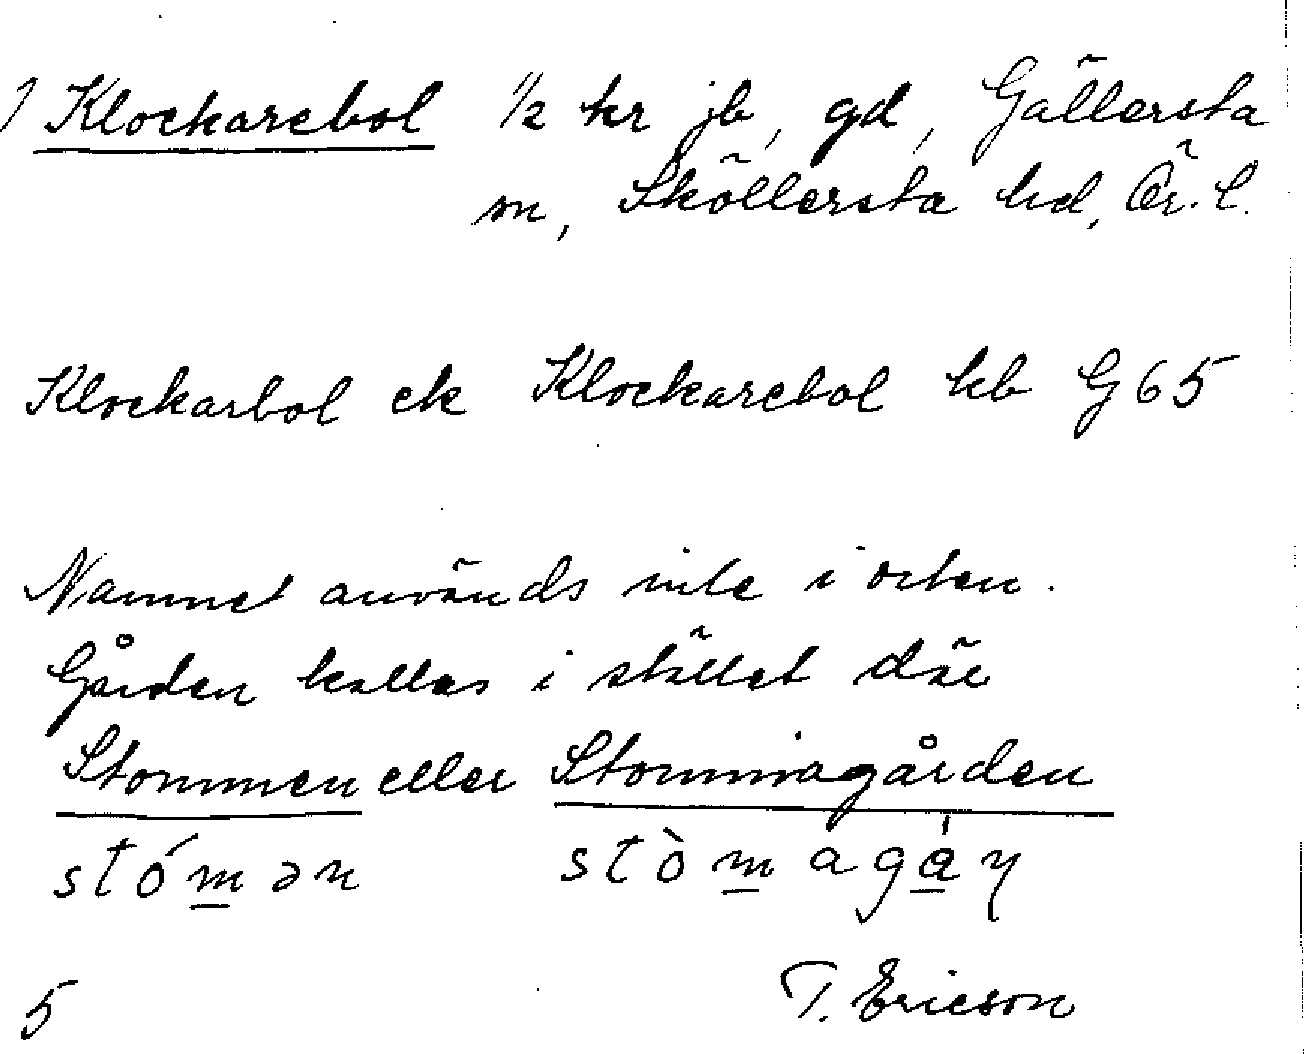 ) Klockarebol 1/2 kr jb, gd, Gällersta
sn, Sköllersta hd, Ör. l.
Klockarbol ek Klockarebol kb G65
Namnet används inte i orten.
Gården kallas i stället där
Stommen eller Stommagården
stómən stòmagáɳ
5 T. Ericson